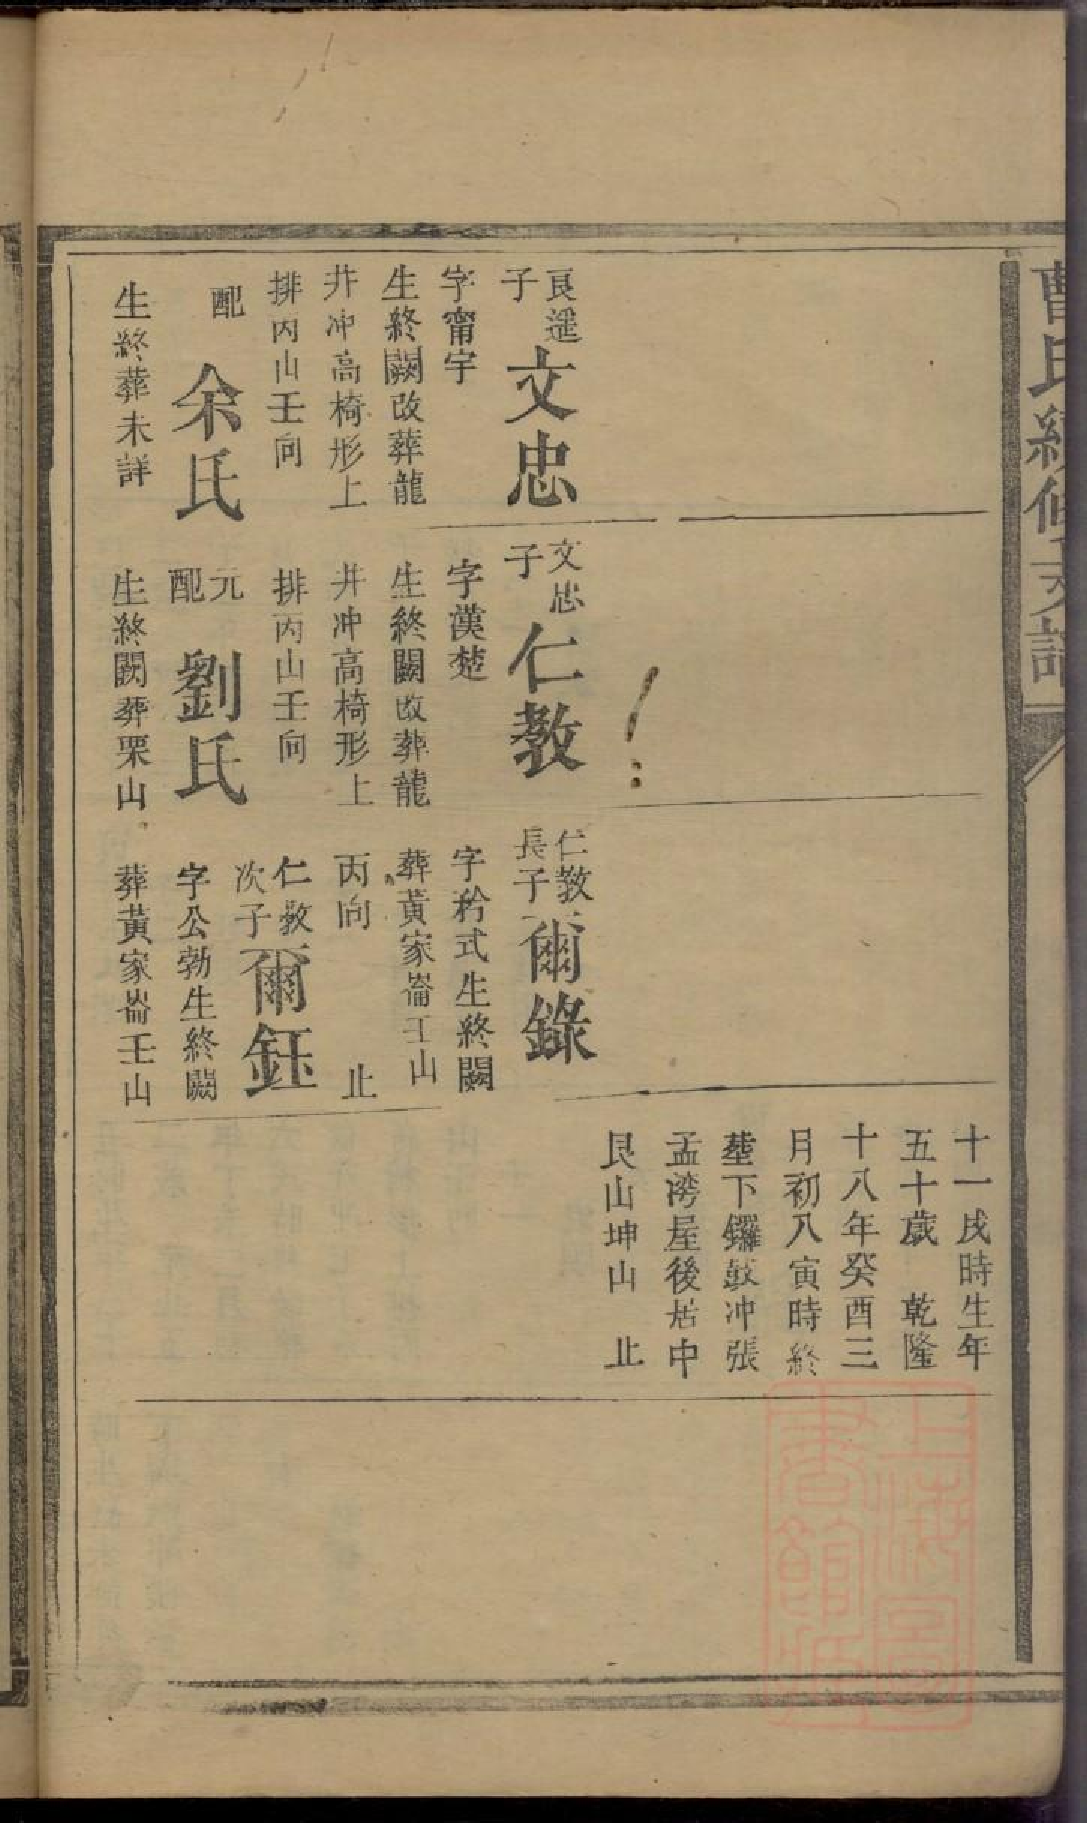 曹氏續修支譜
良遥
子
文忠
字甯宇
生終闕改葬龍
井冲高椅形上
排丙山壬向
配
余氏
生終葬未詳
文忠
子
仁教
字漢楚
生終闕改葬龍
井冲高椅形上
排丙山壬向
元
配
劉氏
生終闕葬栗山
仁教
長子
爾錄
字矜式生終闕
葬黃家崙壬山
丙向 止
仁教
次子
爾鈺
字公勃生終闕
葬黃家崙壬山
十一戌時生年
五十歲 乾隆
十八年癸酉三
月初八寅時終
塟下鑼鼓冲張
孟灣屋後居中
艮山坤山 止
上海圖
書館藏